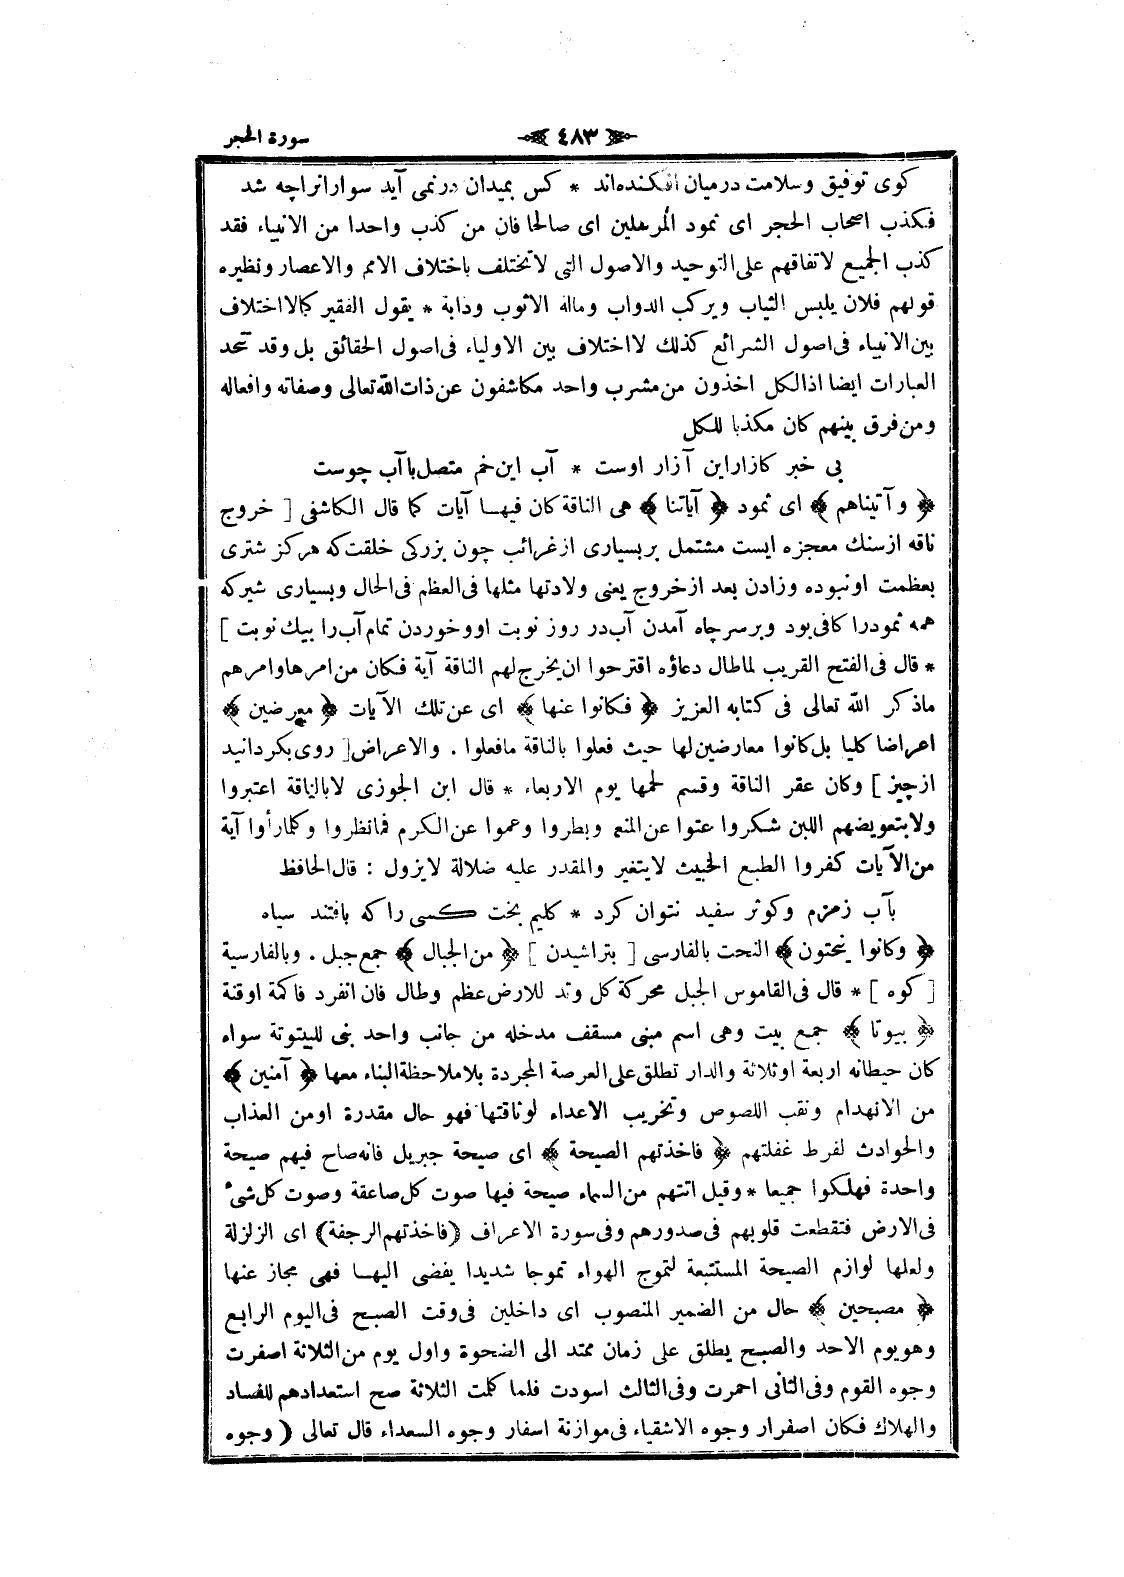 سورة الحجر
﴿ ٤٨٣ ﴾
كوى توفيق وسلامت درميان افكنده‌اند * كس بميدان درنمى آيد سوارانراچه شد
فكذب اصحاب الحجر اى ثمود المرسلين اى صالحا فان من كذب واحدا من الانبياء فقد
كذب الجميع لاتفاقهم على التوحيد والاصول التى لاتختلف باختلاف الامم والاعصار ونظيره
قولهم فلان يلبس الثياب ويركب الدواب وماله الاثوب ودابة * يقول الفقير كالااختلاف
بين الانبياء فى اصول الشرائع كذلك لااختلاف بين الاولياء فى اصول الحقائق بل وقد تتحد
العبارات ايضا اذالكل اخذون من مشرب واحد مكاشفون عن ذات الله تعالى وصفاته وافعاله
ومن فرق بينهم كان مكذبا للكل
بى خبر كازاراين آزار اوست * آب اين خم متصل باآب جوست
﴿ وآتيناهم ﴾ اى ثمود ﴿ آياتنا ﴾ هى الناقة كان فيهـا آيات كما قال الكاشفى [ خروج
ناقه ازسنك معجزه ايست مشتمل بربسيارى ازغرائب چون بزركى خلقت كه هركز شترى
بعظمت اونبوده وزادن بعد ازخروج يعنى ولادتها مثلها فى العظم فى الحال وبسيارى شيركه
همه ثمودرا كافى بود وبرسرچاه آمدن آب در روز نوبت اووخوردن تمام آب را بيك نوبت ]
* قال فى الفتح القريب لماطال دعاؤه اقترحوا ان يخرج لهم الناقة آية فكان من امرهاوامرهم
ماذكر الله تعالى فى كتابه العزيز ﴿ فكانوا عنها ﴾ اى عن تلك الآيات ﴿ معرضين ﴾
اعراضا كليا بل كانوا معارضين لها حيث فعلوا بالناقة مافعلوا . والاعراض [ روى بكردانيد
ازچيز ] وكان عقر الناقة وقسم لحمها يوم الاربعاء * قال ابن الجوزى لابالناقة اعتبروا
ولابتعويضهم اللبن شكروا عتوا عن المنعم وبطروا وعموا عن الكرم فمانظروا وكلمارأوا آية
من الآيات كفروا الطبع الخبيث لايتغير والمقدر عليه ضلالة لايزول : قال الحافظ
بآب زمزم وكوثر سفيد نتوان كرد * كليم بخت كسى راكه بافتند سياه
﴿ وكانوا ينحتون ﴾ النحت بالفارسى [ بتراشيدن ] ﴿ من الجبال ﴾ جمع جبل . وبالفارسية
[ كوه ] * قال فى القاموس الجبل محركة كل وتد للارض عظم وطال فان انفرد فاكمة اوقنة
﴿ بيوتا ﴾ جمع بيت وهى اسم مبنى مسقف مدخله من جانب واحد بنى للبيتوتة سواء
كان حيطانه اربعة اوثلاثة والدار تطلق على العرصة المجردة بلاملاحظة البناء معها ﴿ آمنين ﴾
من الانهدام ونقب اللصوص وتخريب الاعداء لوثاقتها فهو حال مقدرة اومن العذاب
والحوادث لفرط غفلتهم ﴿ فاخذتهم الصيحة ﴾ اى صيحة جبريل فانه صاح فيهم صيحة
واحدة فهلكوا جميعا * وقيل اتتهم من السماء صيحة فيها صوت كل صاعقة وصوت كل شئ
فى الارض فتقطعت قلوبهم فى صدورهم وفى سورة الاعراف (فاخذتهم الرجفة) اى الزلزلة
ولعلها لوازم الصيحة المستتبعة لتموج الهواء تموجا شديدا يفضى اليهـا فهى مجاز عنها
﴿ مصبحين ﴾ حال من الضمير المنصوب اى داخلين فى وقت الصبح فى اليوم الرابع
وهو يوم الاحد والصبح يطلق على زمان ممتد الى الضحوة واول يوم من الثلاثة اصفرت
وجوه القوم وفى الثانى احمرت وفى الثالث اسودت فلما كملت الثلاثة صح استعدادهم للفساد
والهلاك فكان اصفرار وجوه الاشقياء فى موازنة اسفار وجوه السعداء قال تعالى ( وجوه